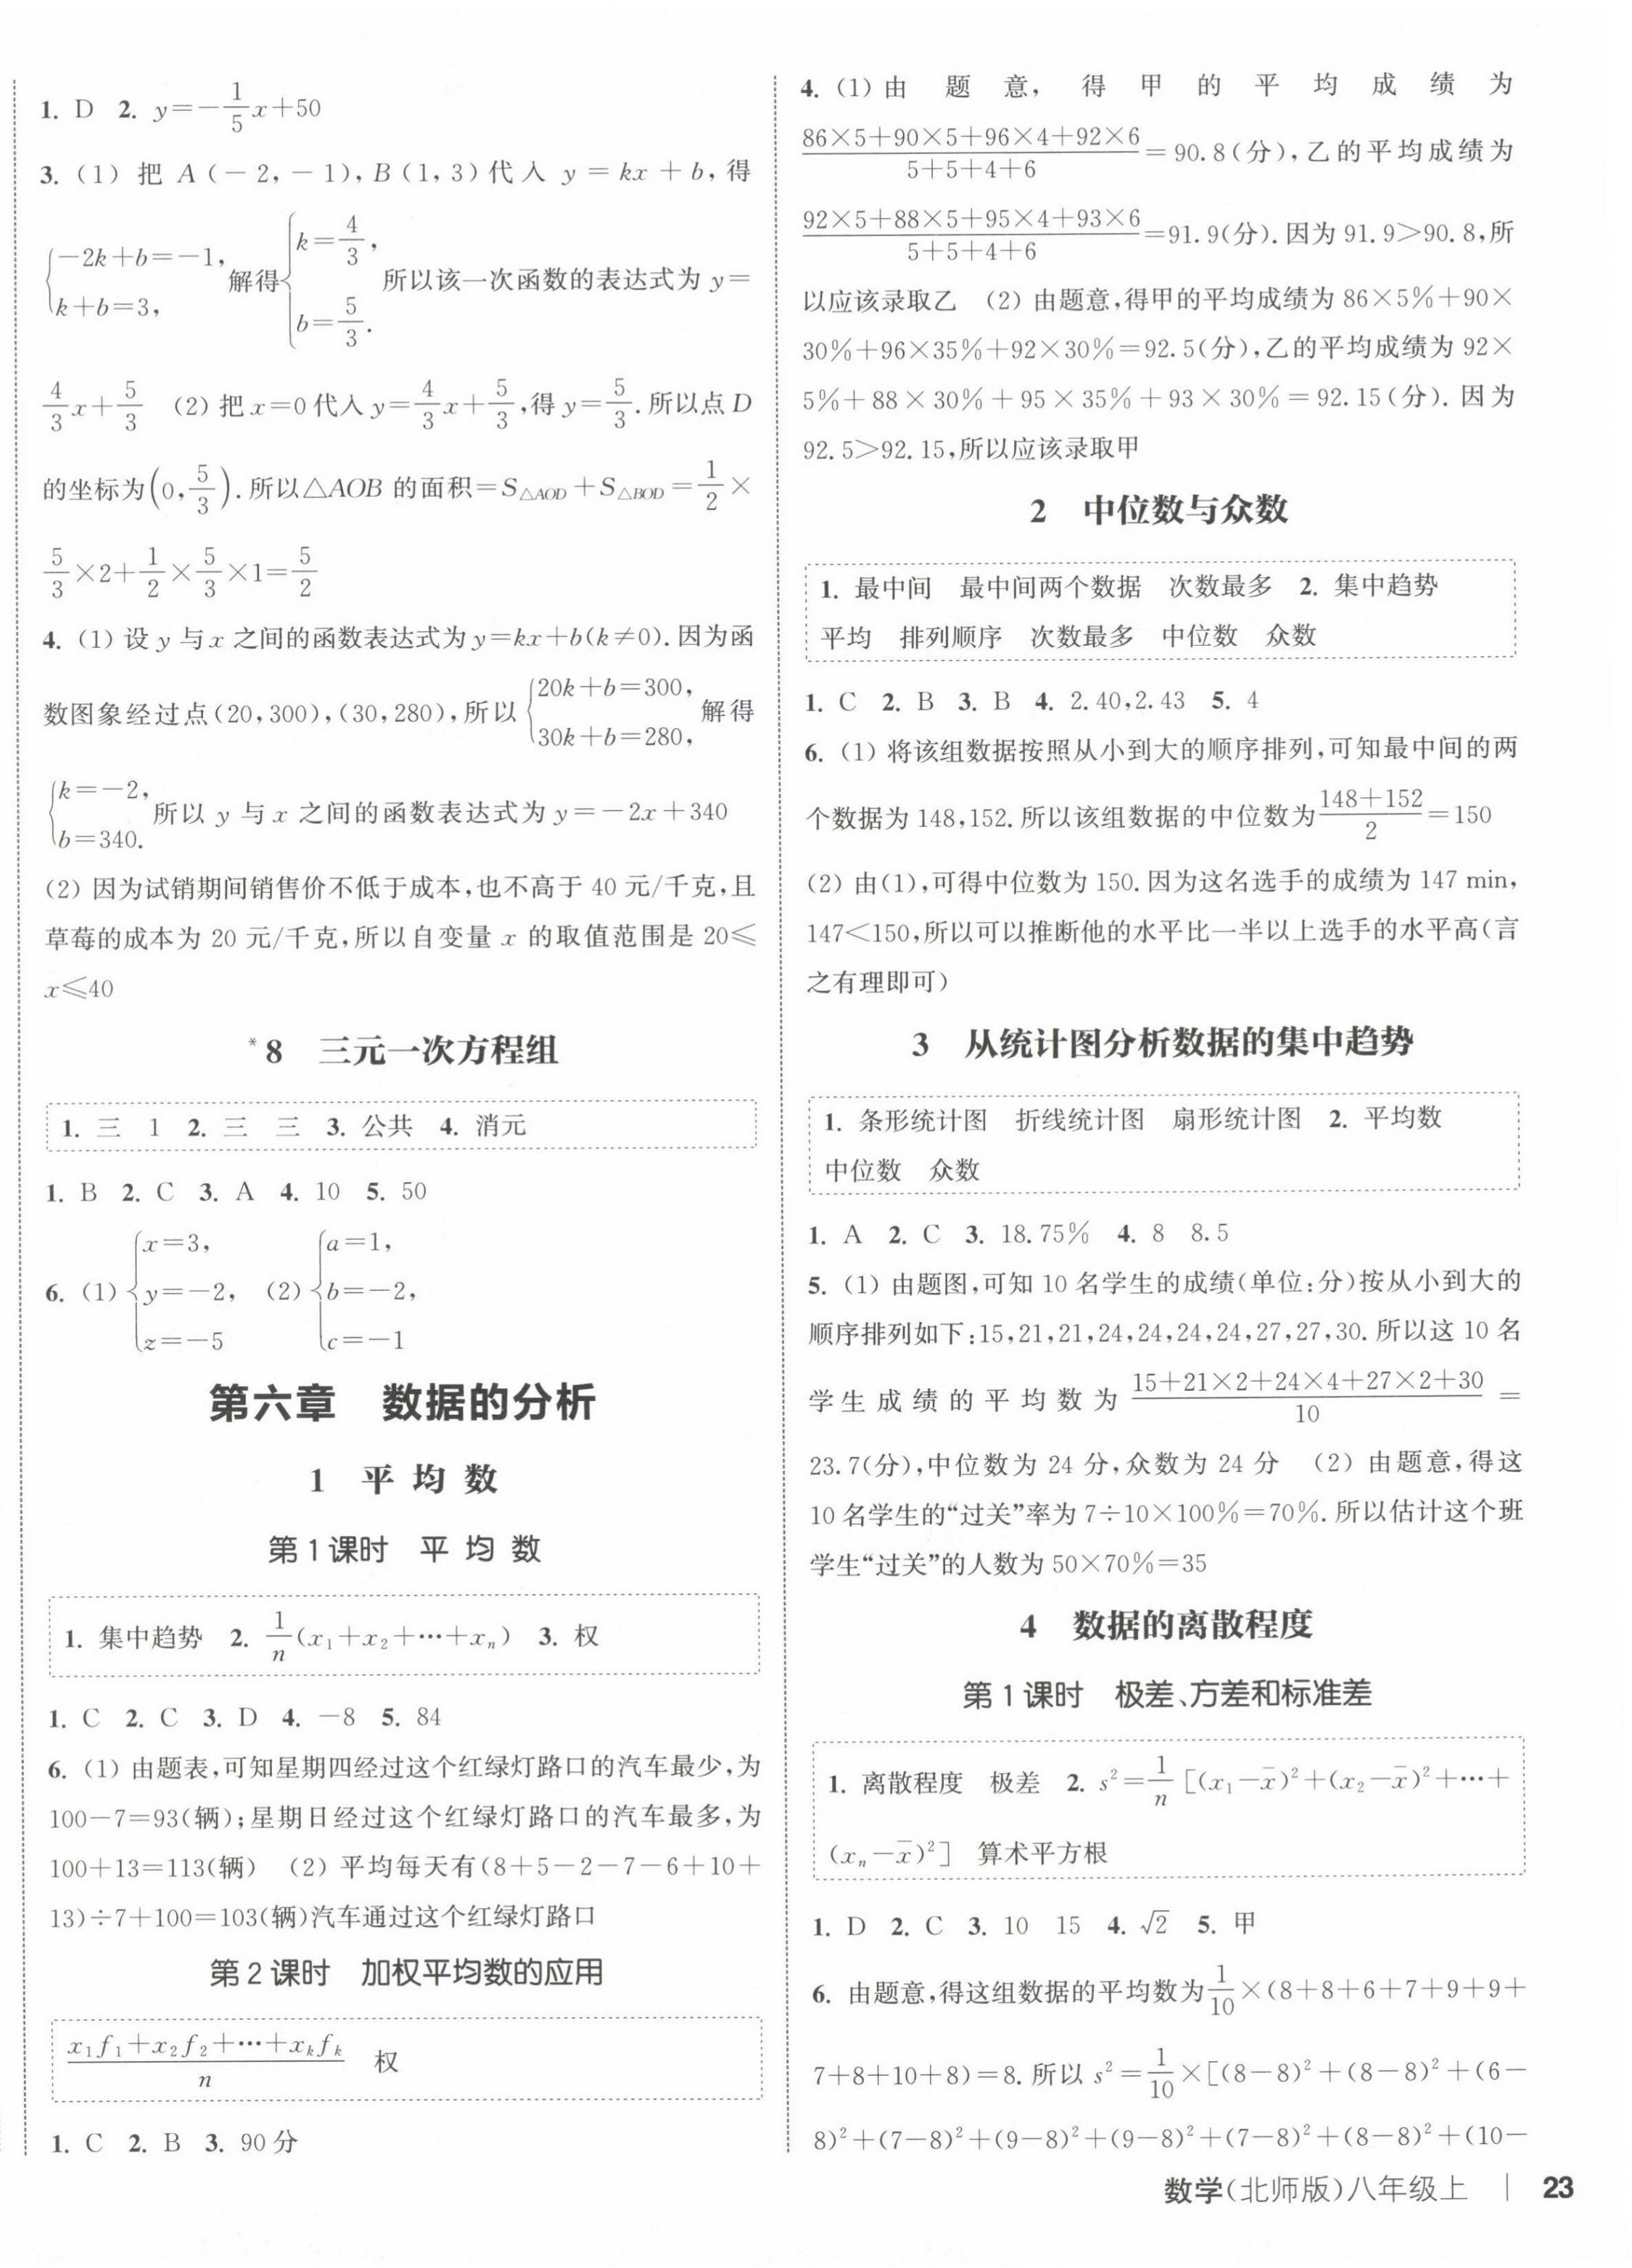 1. D 2. y=-\frac{1}{5}x+50
3. (1) 把 A(-2,-1),B(1,3)代入 y=kx+b,得
{-2k+b=-1, k+b=3, 解得{k=\frac{4}{3}, b=\frac{5}{3}. 所以该一次函数的表达式为 y=
\frac{4}{3}x+\frac{5}{3} (2) 把 x=0 代入 y=\frac{4}{3}x+\frac{5}{3},得 y=\frac{5}{3}.所以点 D
的坐标为(0,\frac{5}{3}).所以△AOB 的面积=S△AOD+S△BOD=\frac{1}{2}×
\frac{5}{3}×2+\frac{1}{2}×\frac{5}{3}×1=\frac{5}{2}
4. (1) 设 y 与 x 之间的函数表达式为 y=kx+b(k≠0).因为函
数图象经过点(20,300),(30,280),所以{20k+b=300, 30k+b=280, 解得
{k=-2, b=340. 所以 y 与 x 之间的函数表达式为 y=-2x+340
(2) 因为试销期间销售价不低于成本,也不高于 40 元/千克,且
草莓的成本为 20 元/千克,所以自变量 x 的取值范围是 20≤
x≤40
*8 三元一次方程组
1. 三 1 2. 三 三 3. 公共 4. 消元
1. B 2. C 3. A 4. 10 5. 50
6. (1) {x=3, y=-2, z=-5 (2) {a=1, b=-2, c=-1
第六章 数据的分析
1 平均数
第1课时 平均数
1. 集中趋势 2. \frac{1}{n}(x₁+x₂+…+xₙ) 3. 权
1. C 2. C 3. D 4. -8 5. 84
6. (1) 由题表,可知星期四经过这个红绿灯路口的汽车最少,为
100-7=93(辆);星期日经过这个红绿灯路口的汽车最多,为
100+13=113(辆) (2) 平均每天有(8+5-2-7-6+10+
13)÷7+100=103(辆)汽车通过这个红绿灯路口
第2课时 加权平均数的应用
\frac{x₁f₁+x₂f₂+…+xₖfₖ}{n} 权
1. C 2. B 3. 90分
4. (1) 由题意,得甲的平均成绩为
\frac{86×5+90×5+96×4+92×6}{5+5+4+6}=90.8(分),乙的平均成绩为
\frac{92×5+88×5+95×4+93×6}{5+5+4+6}=91.9(分).因为 91.9>90.8,所
以应该录取乙 (2) 由题意,得甲的平均成绩为 86×5%+90×
30%+96×35%+92×30%=92.5(分),乙的平均成绩为 92×
5%+88×30%+95×35%+93×30%=92.15(分).因为
92.5>92.15,所以应该录取甲
2 中位数与众数
1. 最中间 最中间两个数据 次数最多 2. 集中趋势
平均 排列顺序 次数最多 中位数 众数
1. C 2. B 3. B 4. 2.40,2.43 5. 4
6. (1) 将该组数据按照从小到大的顺序排列,可知最中间的两
个数据为 148,152.所以该组数据的中位数为\frac{148+152}{2}=150
(2) 由(1),可得中位数为 150.因为这名选手的成绩为 147 min,
147<150,所以可以推断他的水平比一半以上选手的水平高(言
之有理即可)
3 从统计图分析数据的集中趋势
1. 条形统计图 折线统计图 扇形统计图 2. 平均数
中位数 众数
1. A 2. C 3. 18.75% 4. 8 8.5
5. (1) 由题图,可知 10 名学生的成绩(单位:分)按从小到大的
顺序排列如下:15,21,21,24,24,24,24,27,27,30.所以这 10 名
学生成绩的平均数为\frac{15+21×2+24×4+27×2+30}{10}=
23.7(分),中位数为 24 分,众数为 24 分 (2) 由题意,得这
10 名学生的“过关”率为 7÷10×100%=70%.所以估计这个班
学生“过关”的人数为 50×70%=35
4 数据的离散程度
第1课时 极差、方差和标准差
1. 离散程度 极差 2. s²=\frac{1}{n}[(x₁-x̄)²+(x₂-x̄)²+…+
(xₙ-x̄)²] 算术平方根
1. D 2. C 3. 10 15 4. √2 5. 甲
6. 由题意,得这组数据的平均数为\frac{1}{10}×(8+8+6+7+9+9+
7+8+10+8)=8.所以 s²=\frac{1}{10}×[(8-8)²+(8-8)²+(6-
8)²+(7-8)²+(9-8)²+(9-8)²+(7-8)²+(8-8)²+(10-
数学(北师版)八年级上 | 23